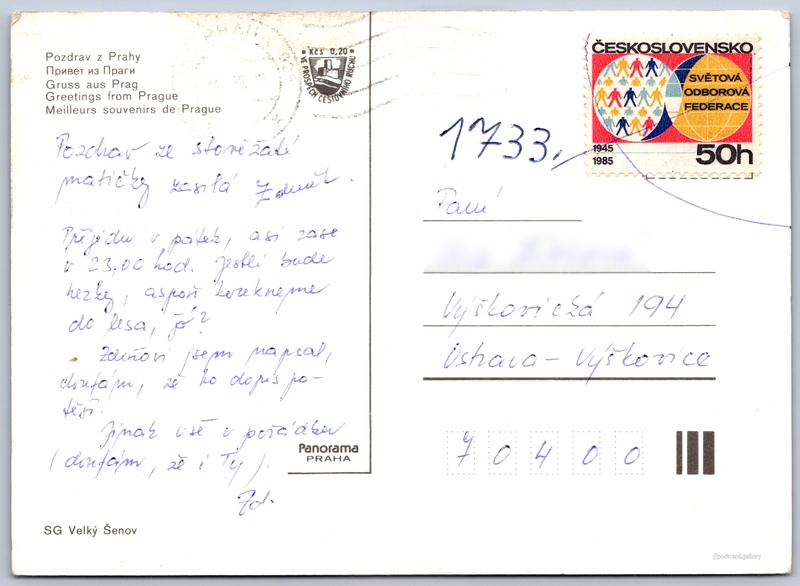 Pozdrav z Prahy
Привет из Праги
Gruss aus Prag
Greetings from Prague
Meilleurs souvenirs de Prague
PRAHA
Kčs 0,20
VE PROSPĚCH CESTOVNÍHO RUCHU
ČESKOSLOVENSKO
SVĚTOVÁ
ODBOROVÁ
FEDERACE
1945
1985
50h
1733.
Pozdrav ze stověžaté
matičky zasílá Zdeněk.
Přijedu v pátek, asi zase
v 23,00 hod. Jestli bude
hezky, aspoň
do lesa, jo?
Zdeňovi jsem napsal,
doufám, že ho dopis po-
těší.
Jinak vše v pořádku
(doufám, že i Ty).
Zd.
Paní
Výškovická 194
Ostrava - Výškovice
70400
Panorama
PRAHA
SG Velký Šenov